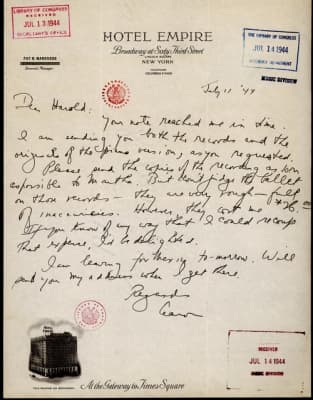 LIBRARY OF CONGRESS
RECEIVED
JUL 13 1944
SECRETARY'S OFFICE
HOTEL EMPIRE
Broadway at Sixty Third Street
LINCOLN SQUARE
NEW YORK
THE LIBRARY OF CONGRESS
JUL 14 1944
MUSIC DIVISION
General Manager
July 11 '44
Dear Harold:
Your note reached me in time.
I am sending you both the records and the
originals of the piano version, as you requested.
Please send the copies of the recording as soon
as possible to Martha. But don't judge the ballet
on those records — they are very rough — full
of inaccuracies. However they cost me $36.—
If you know of any way that I could recoup
that expense, I'd be delighted.
I am leaving for the trip to-morrow. Will
send you my address when I get there.
Regards
Aaron
At the Gateway to Times Square
RECEIVED
JUL 14 1944
MUSIC DIVISION